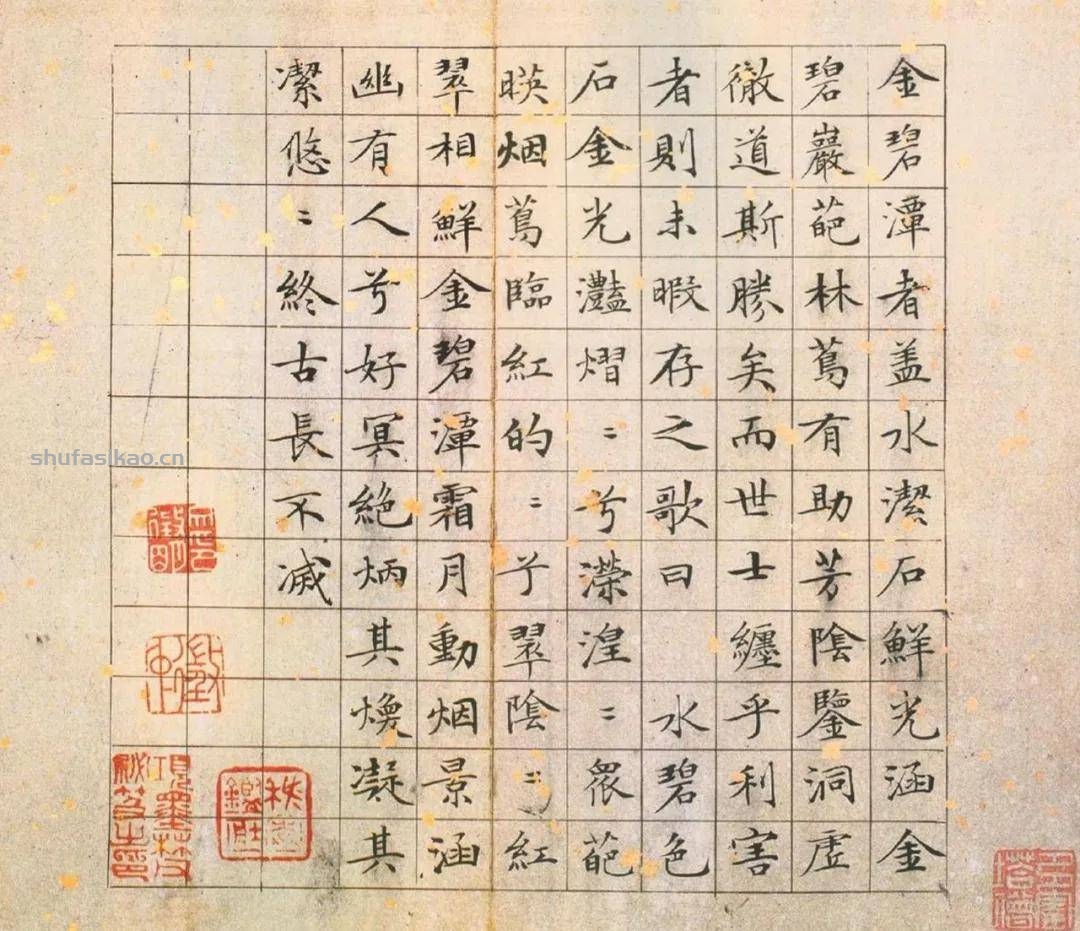 金碧潭者盖水潔石鮮光涵金
碧巖葩林蔦有助芳陰鑒洞虚
徹道斯勝矣而世士纏乎利害
者則未暇存之歌曰 水碧色
石金光灔熠〻兮濙湟〻衆葩
暎烟蔦臨紅的〻兮翠陰〻紅
翠相鮮金碧潭霜月動烟景涵
幽有人兮好冥絶炳其煥凝其
潔悠〻終古長不滅
徵明
shufasikao.cn